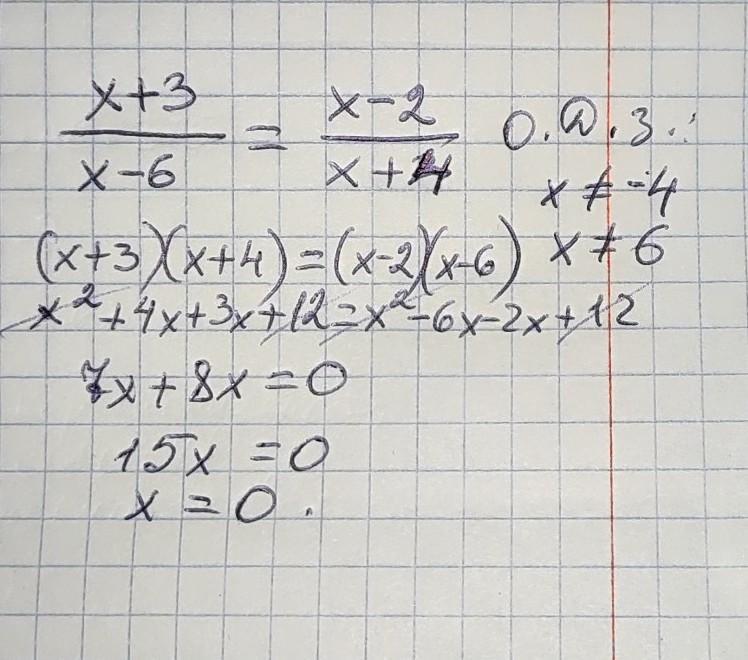 (x+3)/(x-6) = (x-2)/(x+4) О.Д.З.:
x ≠ -4
(x+3)(x+4)=(x-2)(x-6) x ≠ 6
x²+4x+3x+12=x²-6x-2x+12
7x+8x=0
15x=0
x=0.